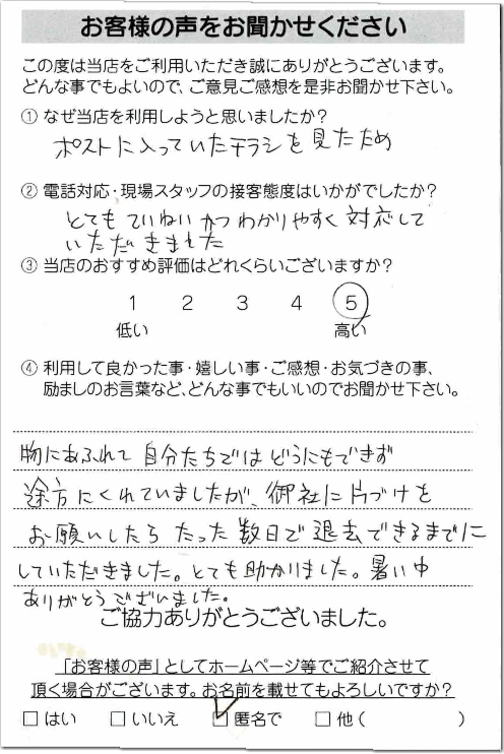 お客様の声をお聞かせください
この度は当店をご利用いただき誠にありがとうございます。
どんな事でもよいので、ご意見ご感想を是非お聞かせ下さい。
① なぜ当店を利用しようと思いましたか?
ポストに入っていたチラシを見たため
② 電話対応・現場スタッフの接客態度はいかがでしたか?
とても ていねい かつ わかりやすく 対応して
いただきました
③ 当店のおすすめ評価はどれくらいございますか?
1 2 3 4 5
低い 高い
④ 利用して良かった事・嬉しい事・ご感想・お気づきの事、
励ましのお言葉など、どんな事でもいいのでお聞かせ下さい。
物にあふれて 自分たちでは どうにもできず
途方にくれていましたが、御社に片づけを
お願いしたら たった 数日で 退去できるまでに
していただきました。とても助かりました。暑い中
ありがとうございました。
ご協力ありがとうございました。
「お客様の声」としてホームページ等でご紹介させて
頂く場合がございます。お名前を載せてもよろしいですか?
□ はい □ いいえ ☑ 匿名で □ 他( )